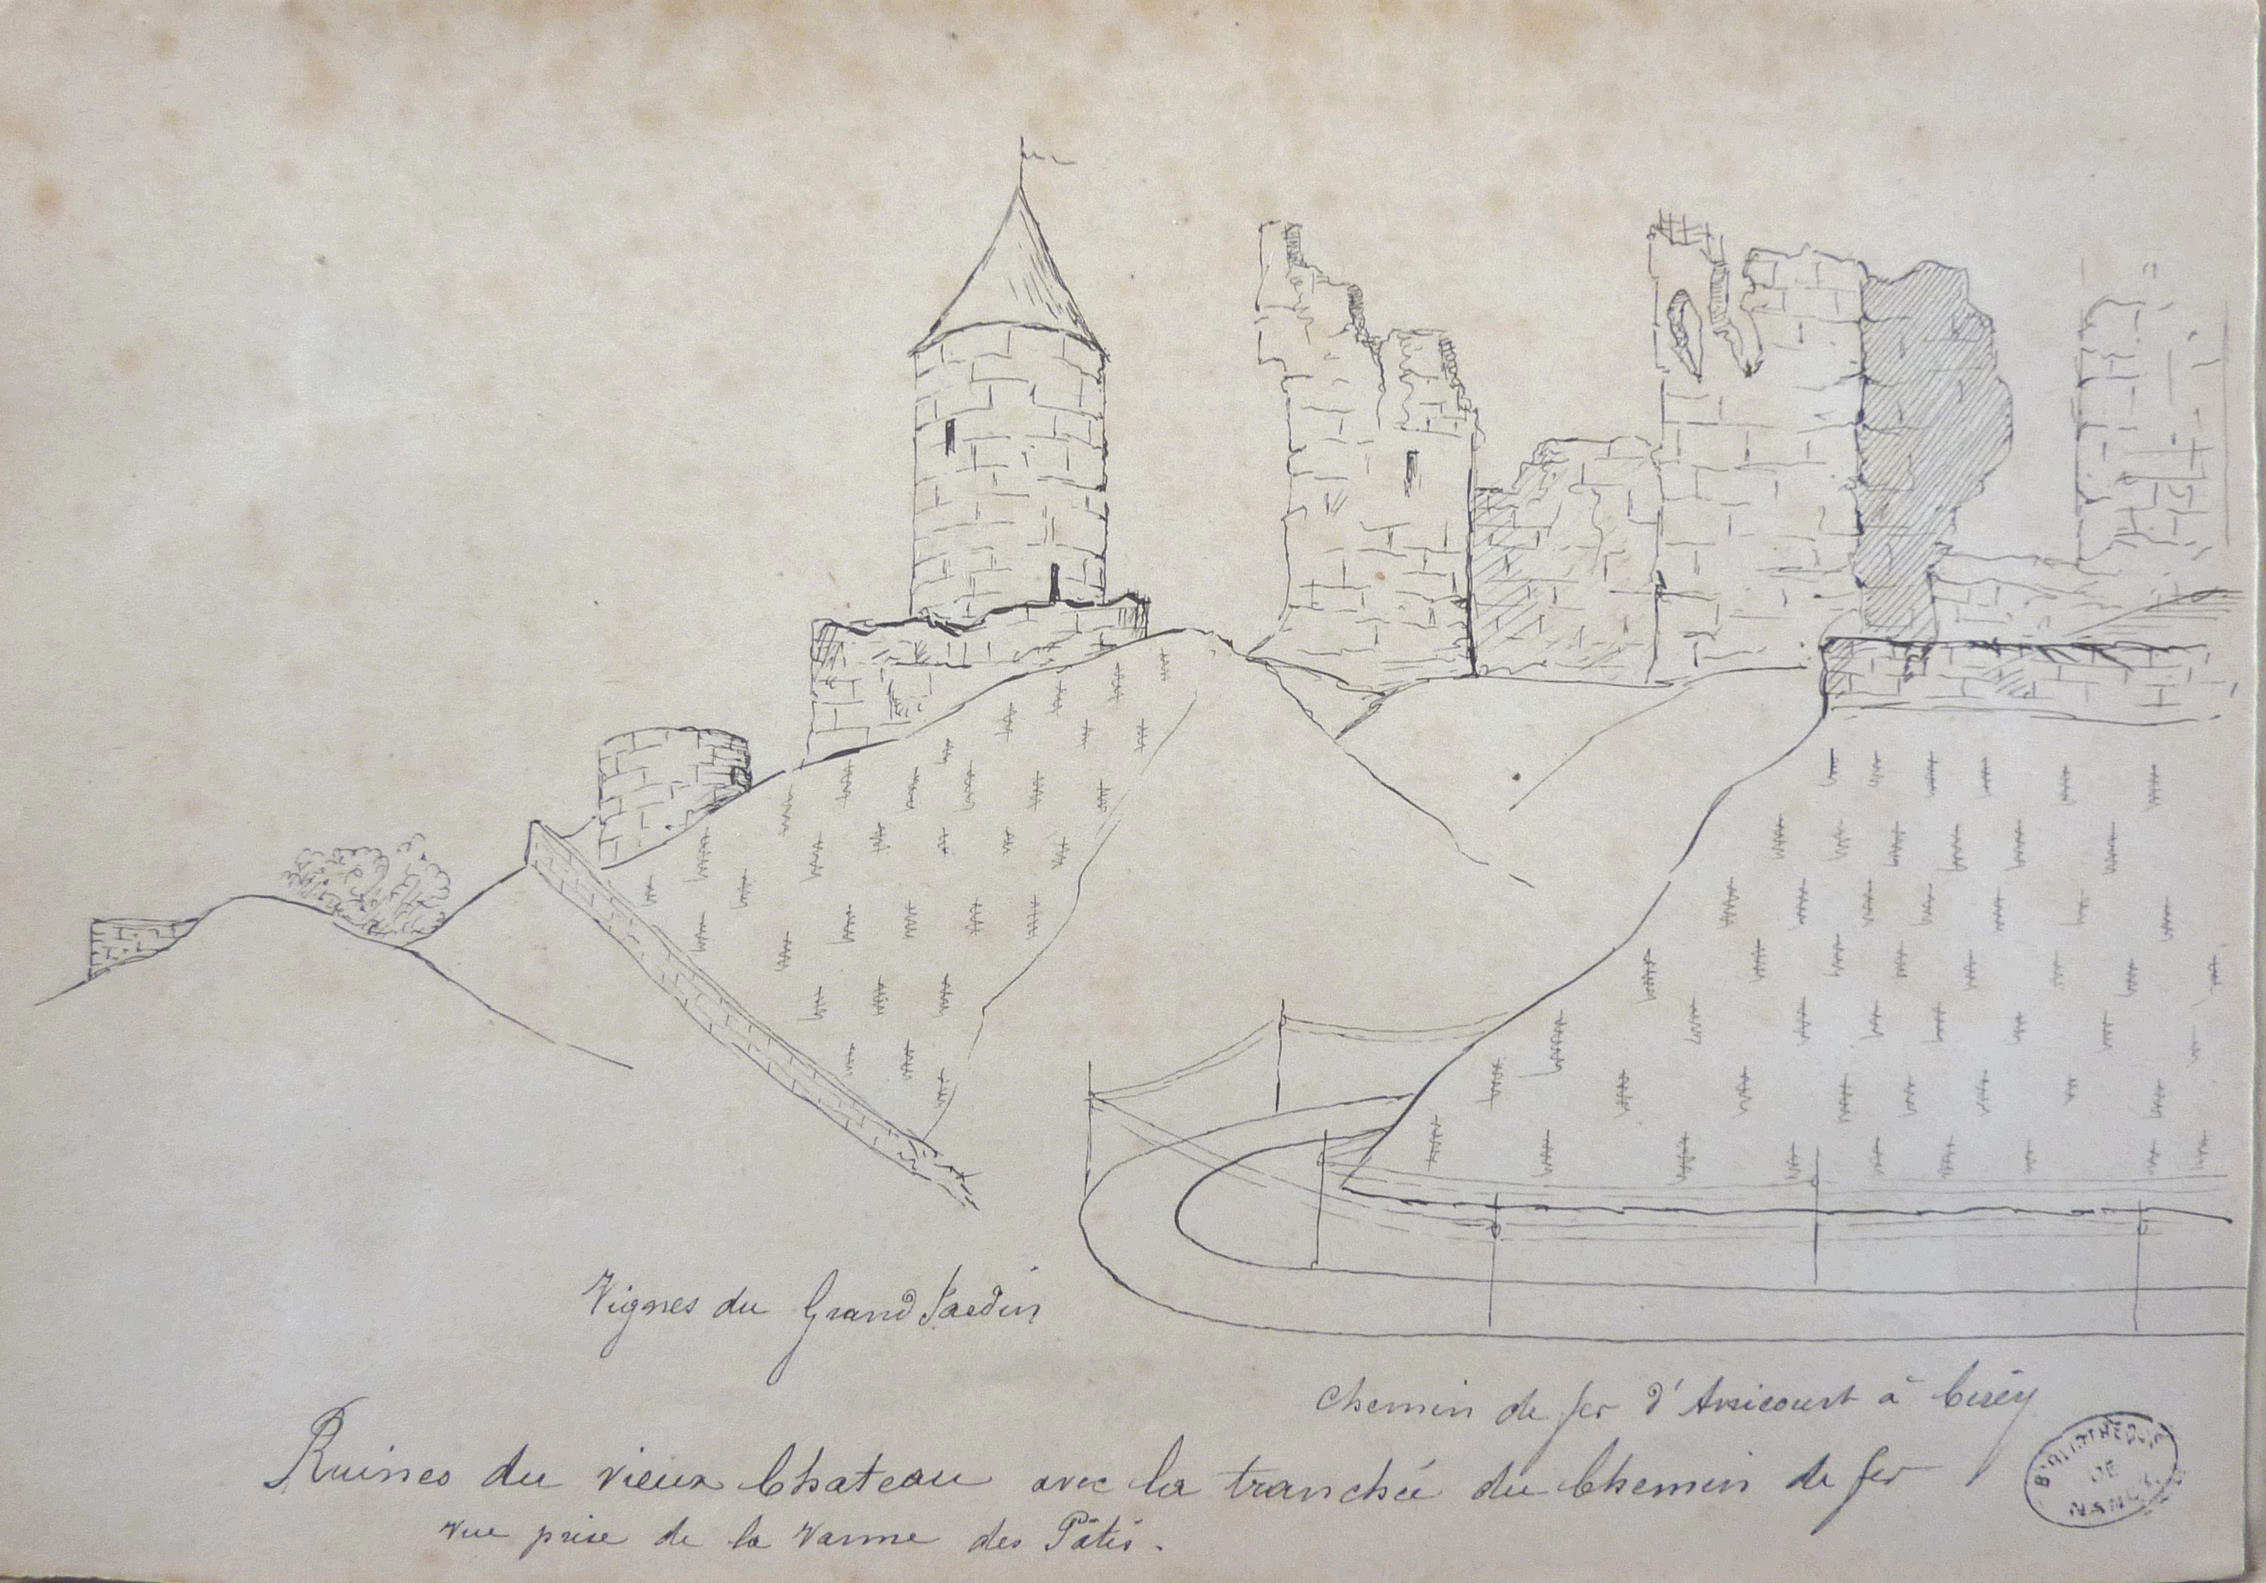 Vignes du Grand Jardin
Chemin de fer d'Avricourt à Cirey
Ruines du vieux Chateau avec la tranchée du Chemin de fer
vue prise de la Vanne des Pâtis.
BIBLIOTHEQUE
DE
NANCY